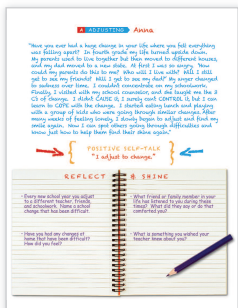 A ADJUSTING Anna
"Have you ever had a huge change in your life where you felt everything
was falling apart? In fourth grade my life turned upside down.
My parents used to live together but then moved to different houses,
and my dad moved to a new state. At first I was so angry. How
could my parents do this to me? Who will I live with? Will I still
get to see my friends? Will I get to see my dad? My anger changed
to sadness over time. I couldn't concentrate on my schoolwork.
Finally, I visited with my school counselor, and she taught me the 3
C's of change. I didn't CAUSE it, I surely can't CONTROL it, but I can
learn to COPE with the change. I started eating lunch and playing
with a group of kids who were going through similar changes. After
many weeks of feeling lonely, I slowly began to adjust and find my
smile again. Now I can spot others going through difficulties and
know just how to help them find their shine again."
POSITIVE SELF-TALK
"I adjust to change."
REFLECT & SHINE
Every new school year you adjust
to a different teacher, friends,
and schoolwork. Name a school
change that has been difficult.
Have you had any changes at
home that have been difficult?
How did you feel?
What friend or family member in your
life has listened to you during these
times? What did they say or do that
comforted you?
What is something you wished your
teacher knew about you?